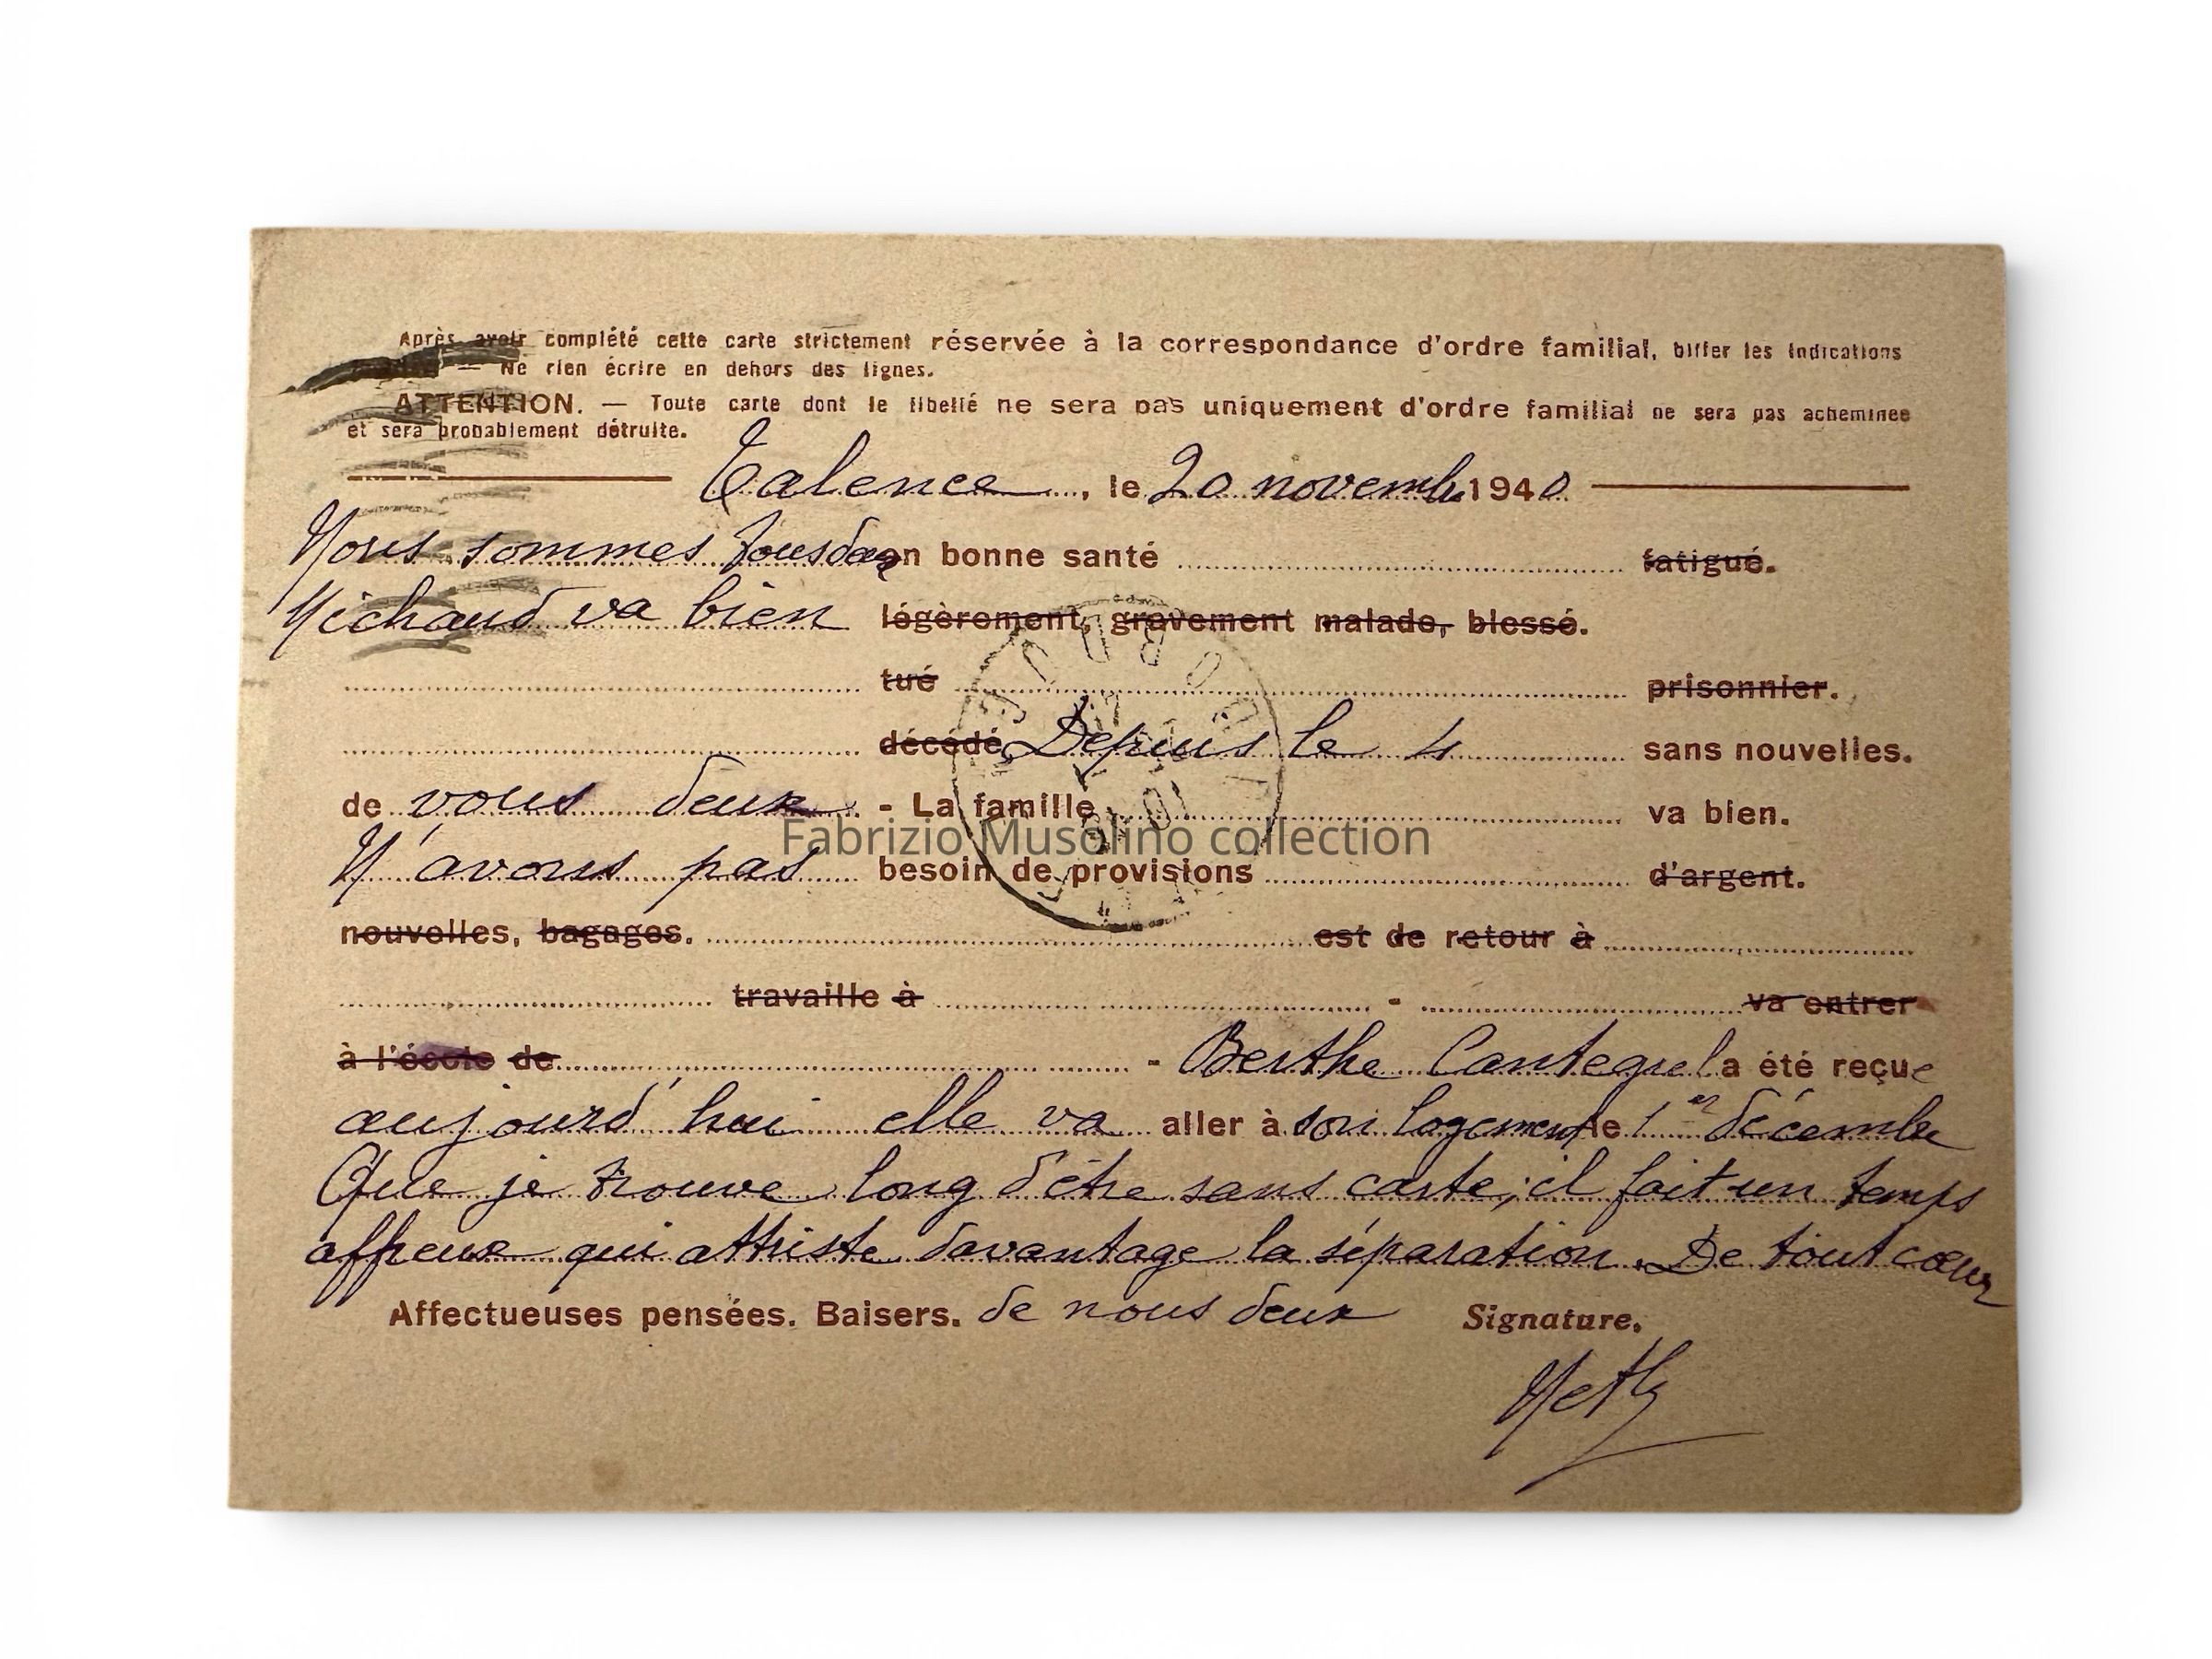 Après avoir complété cette carte strictement réservée à la correspondance d'ordre familial, biffer les indications
— Ne rien écrire en dehors des lignes.
ATTENTION. — Toute carte dont le libellé ne sera pas uniquement d'ordre familial ne sera pas acheminee
et sera probablement détruite.
Talence, le 20 novembre 1940
Nous sommes tous en bonne santé fatigué.
Michaud va bien légèrement, gravement malade, blessé.
tué prisonnier.
décédé Depuis le 4 sans nouvelles.
de vous deux - La famille va bien.
Fabrizio Musolino collection
N'avons pas besoin de provisions d'argent.
nouvelles, bagages. est de retour à
travaille à - va entrer
à l'école de - Berthe Cantegrel a été reçue
aujourd'hui elle va aller à son logement le 1er décembre
Que je trouve long d'être sans carte, il fait un temps
affreux qui attriste davantage la séparation. De tout cœur
Affectueuses pensées. Baisers. de nous deux Signature.